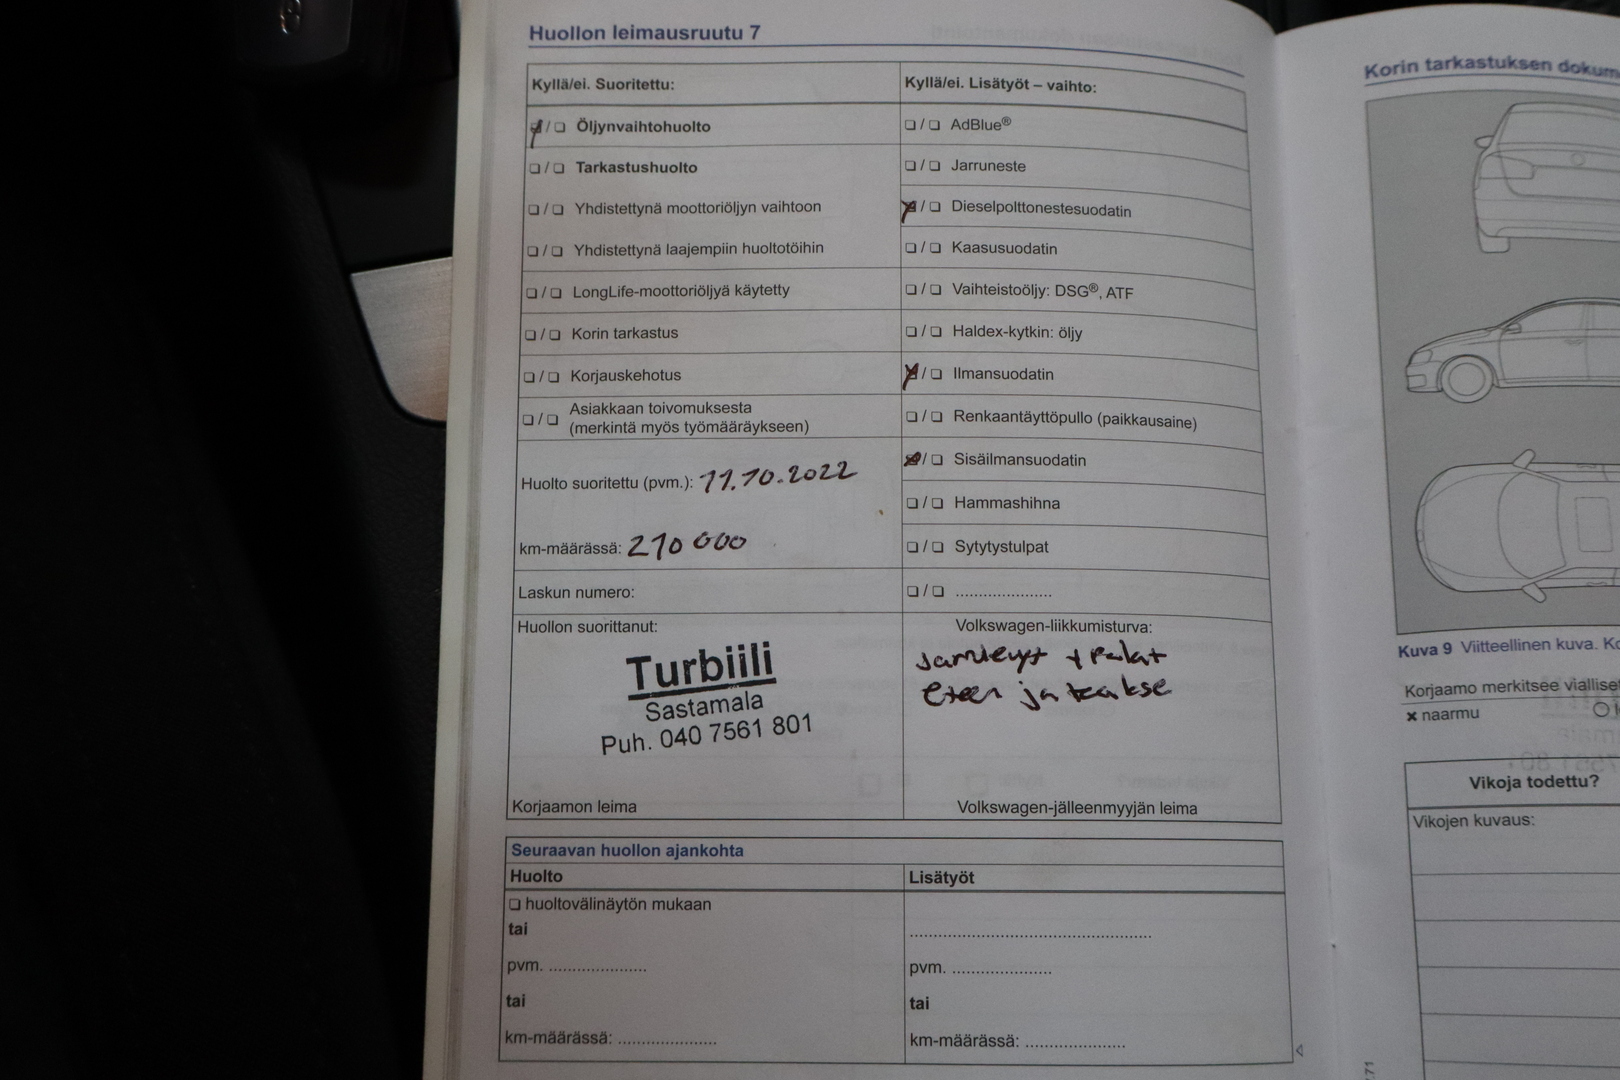 Huollon leimausruutu 7
Kyllä/ei. Suoritettu:
☑/❏ Öljynvaihtohuolto
❏/❏ Tarkastushuolto
❏/❏ Yhdistettynä moottoriöljyn vaihtoon
❏/❏ Yhdistettynä laajempiin huoltotöihin
❏/❏ LongLife-moottoriöljyä käytetty
❏/❏ Korin tarkastus
❏/❏ Korjauskehotus
❏/❏ Asiakkaan toivomuksesta
(merkintä myös työmääräykseen)
Huolto suoritettu (pvm.): 11.10.2022
km-määrässä: 210 000
Laskun numero:
Huollon suorittanut:
Turbiili
Sastamala
Puh. 040 7561 801
Korjaamon leima
Kyllä/ei. Lisätyöt – vaihto:
❏/❏ AdBlue®
❏/❏ Jarruneste
☒/❏ Dieselpolttonestesuodatin
❏/❏ Kaasusuodatin
❏/❏ Vaihteistoöljy: DSG®, ATF
❏/❏ Haldex-kytkin: öljy
☒/❏ Ilmansuodatin
❏/❏ Renkaantäyttöpullo (paikkausaine)
☒/❏ Sisäilmansuodatin
❏/❏ Hammashihna
❏/❏ Sytytystulpat
❏/❏ .....................
Volkswagen-liikkumisturva:
+ Palat
Eteen ja taakse
Volkswagen-jälleenmyyjän leima
Seuraavan huollon ajankohta
Huolto
❏ huoltovälinäytön mukaan
tai
pvm. .....................
tai
km-määrässä: .....................
Lisätyöt
....................................................
pvm. .....................
tai
km-määrässä: .....................
Korin tarkastuksen
Kuva 9 Viitteellinen kuva.
Korjaamo merkitsee
× naarmu
Vikoja todettu?
Vikojen kuvaus:
71